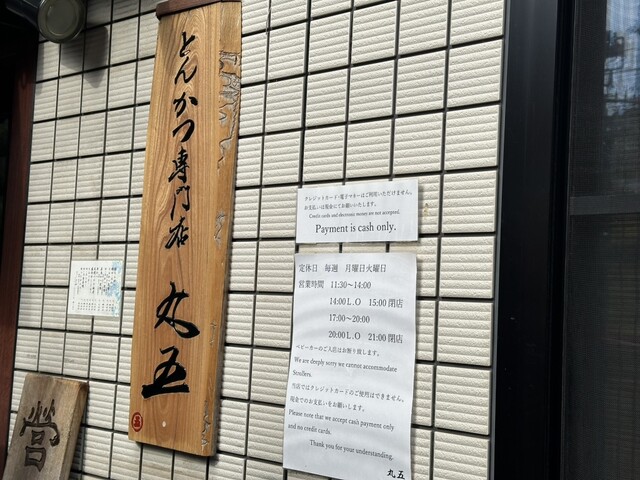 とんかつ専門店 丸五
クレジットカード・電子マネーはご利用いただけません。
お支払いは現金にてお願いいたします。
Credit cards and electronic money are not accepted.
Payment is cash only.
定休日 毎週 月曜日火曜日
営業時間 11:30～14:00
14:00 L.O 15:00 閉店
17:00～20:00
20:00 L.O 21:00 閉店
ベビーカーのご入店はお断り致します。
We are deeply sorry we cannot accommodate
Strollers.
当店ではクレジットカードのご使用はできません。
現金でのお支払いをお願いします。
Please note that we accept cash payment only
and no credit cards.
Thank you for your understanding.
丸五
営